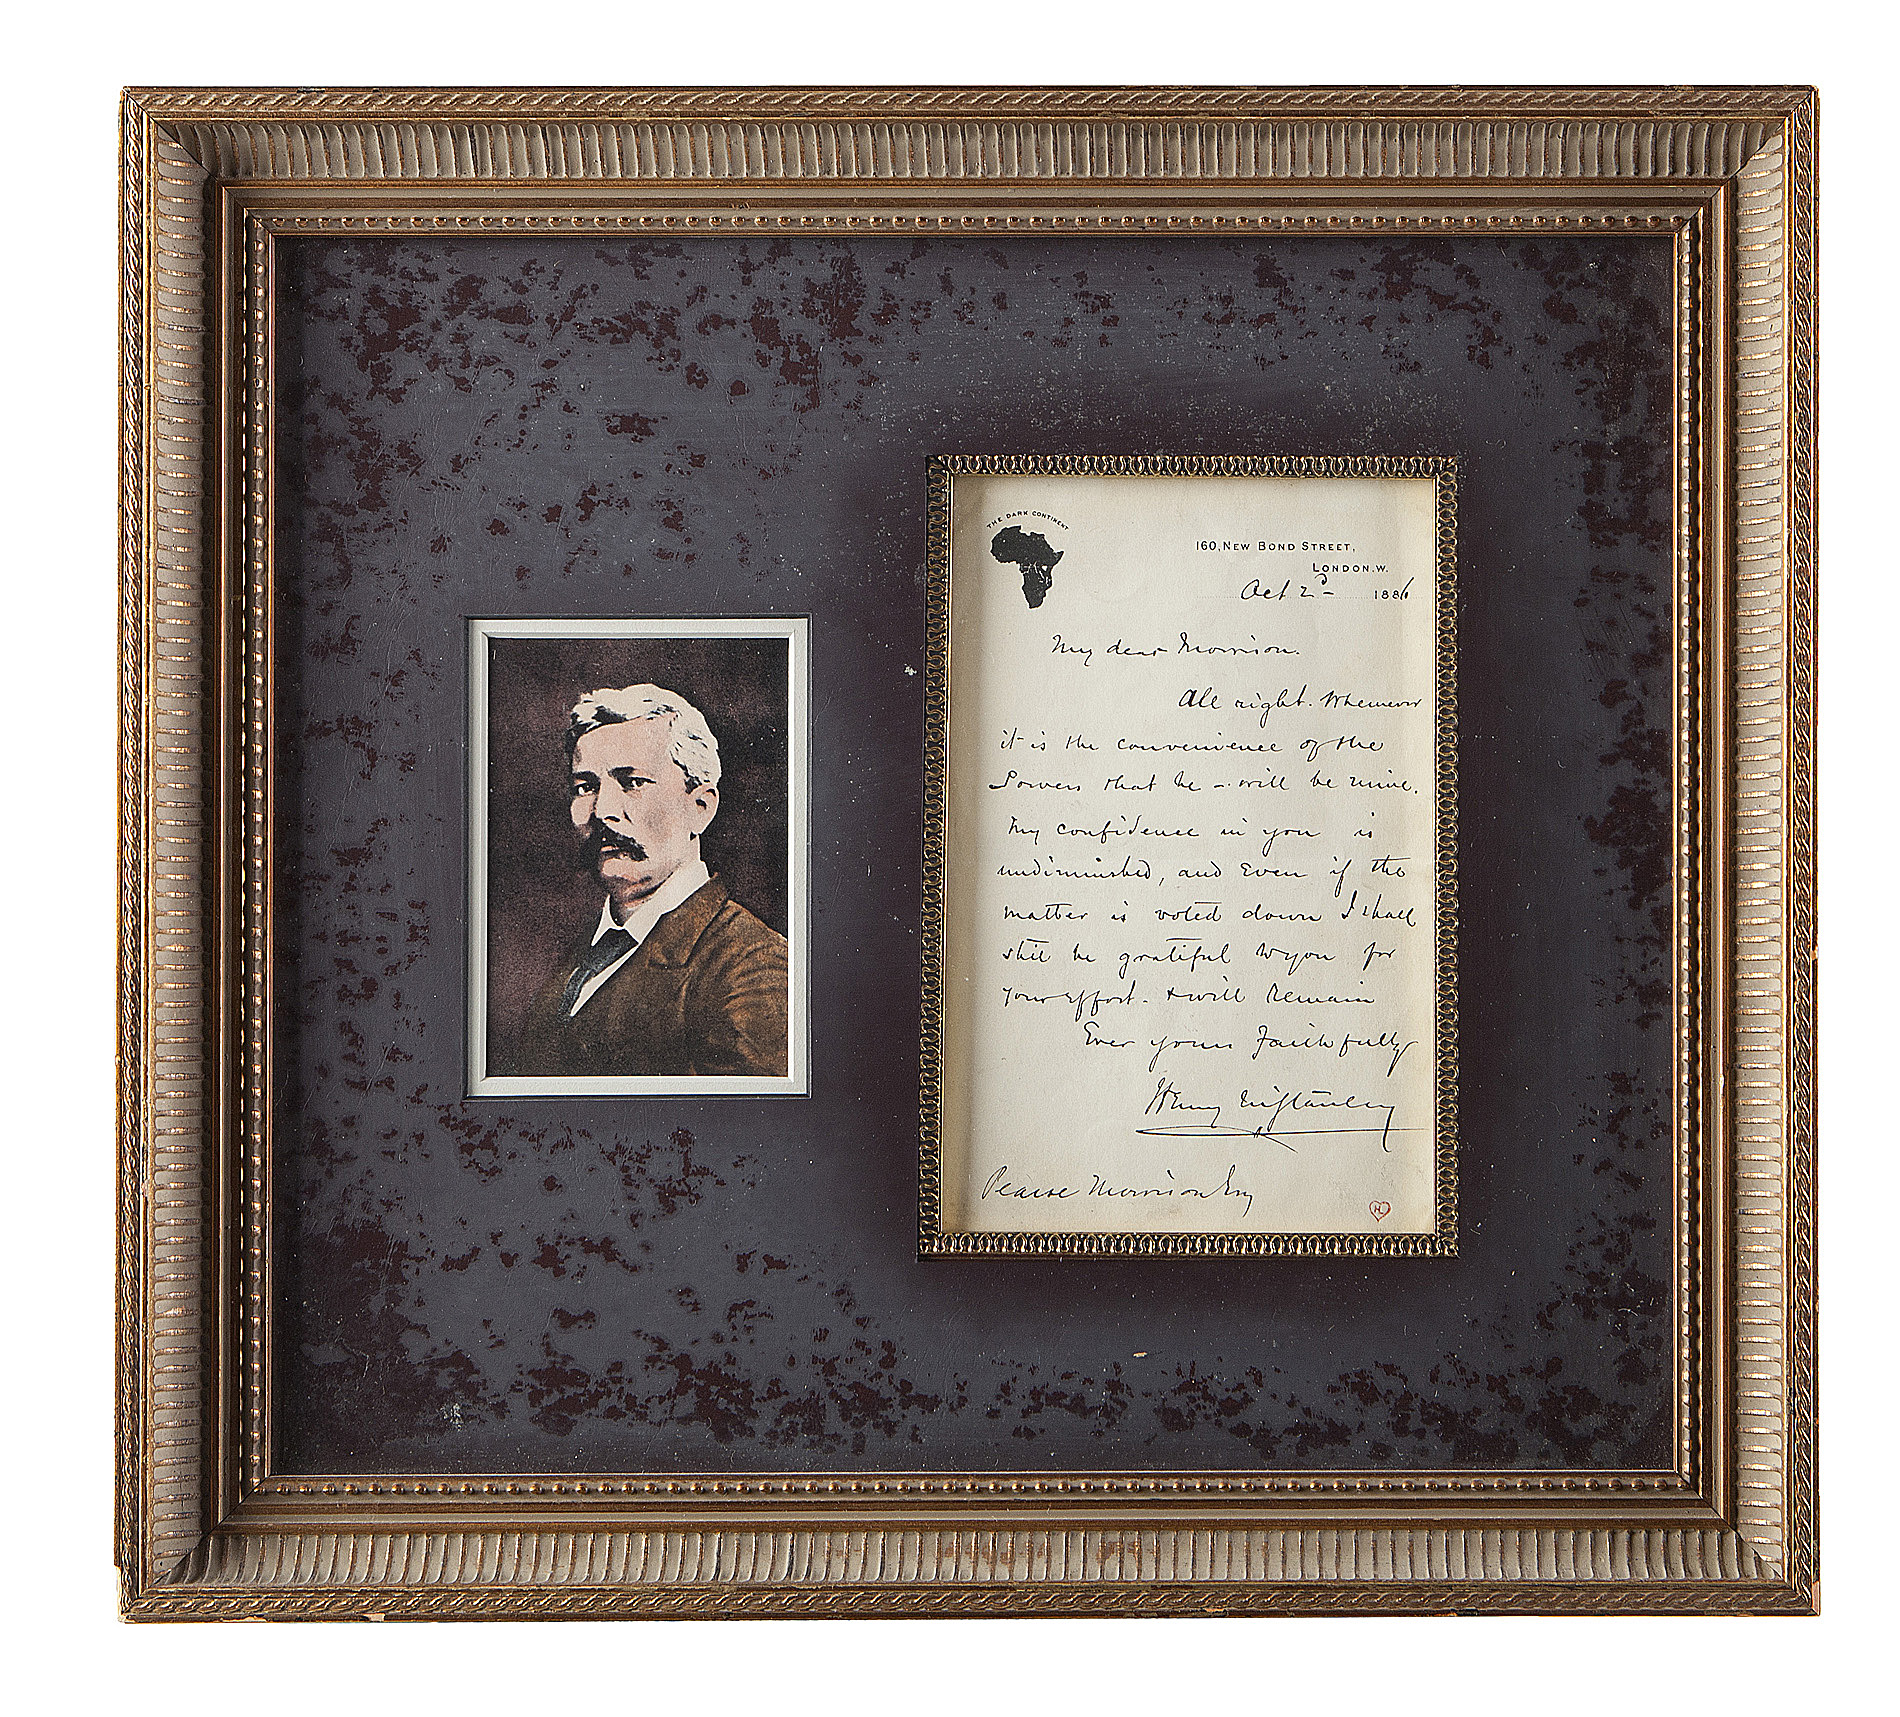 THE DARK CONTINENT
160, NEW BOND STREET,
LONDON. W.
Oct 2d 1886
My dear Morrison.
All right. Whenever
it is the convenience of the
Powers that be – will be mine.
My confidence in you is
undiminished, and even if the
matter is voted down I shall
still be grateful to you for
your effort. & will remain
Ever yours faithfully
Henry M Stanley
Pearse Morrison Esq